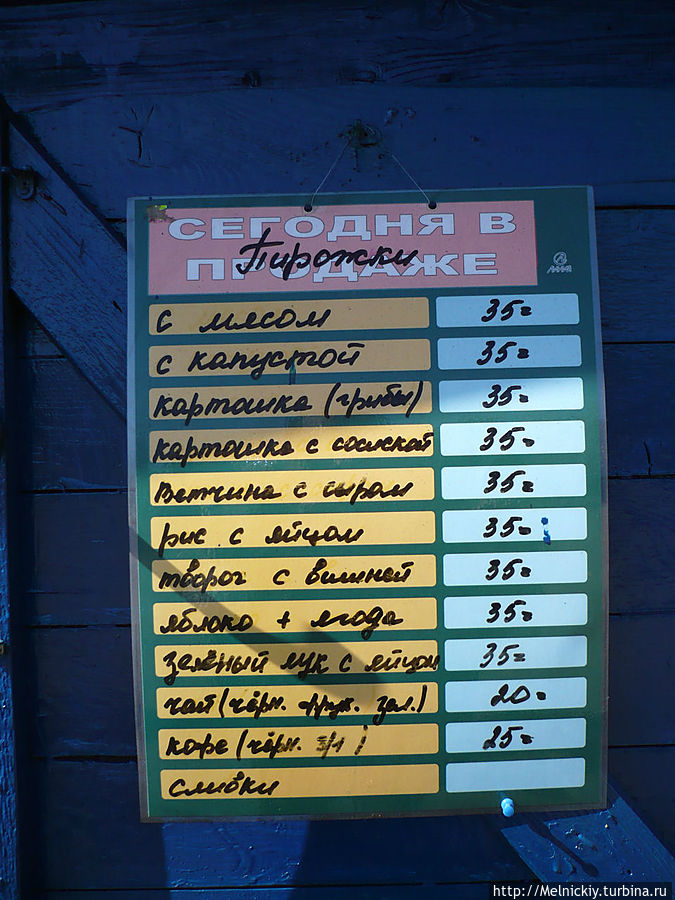 СЕГОДНЯ В
ПРОДАЖЕ
Пирожки
с мясом 35=
с капустой 35=
картошка (грибы) 35=
картошка с сосиской 35=
Ветчина с сыром 35=
рис с яйцом 35=
творог с вишней 35=
яблоко + ягода 35=
зелёный лук с яйцом 35=
чай (чёрн. фрук. зел.) 20=
кофе (чёрн. ) 25=
сливки
http://Melnickiy.turbina.ru